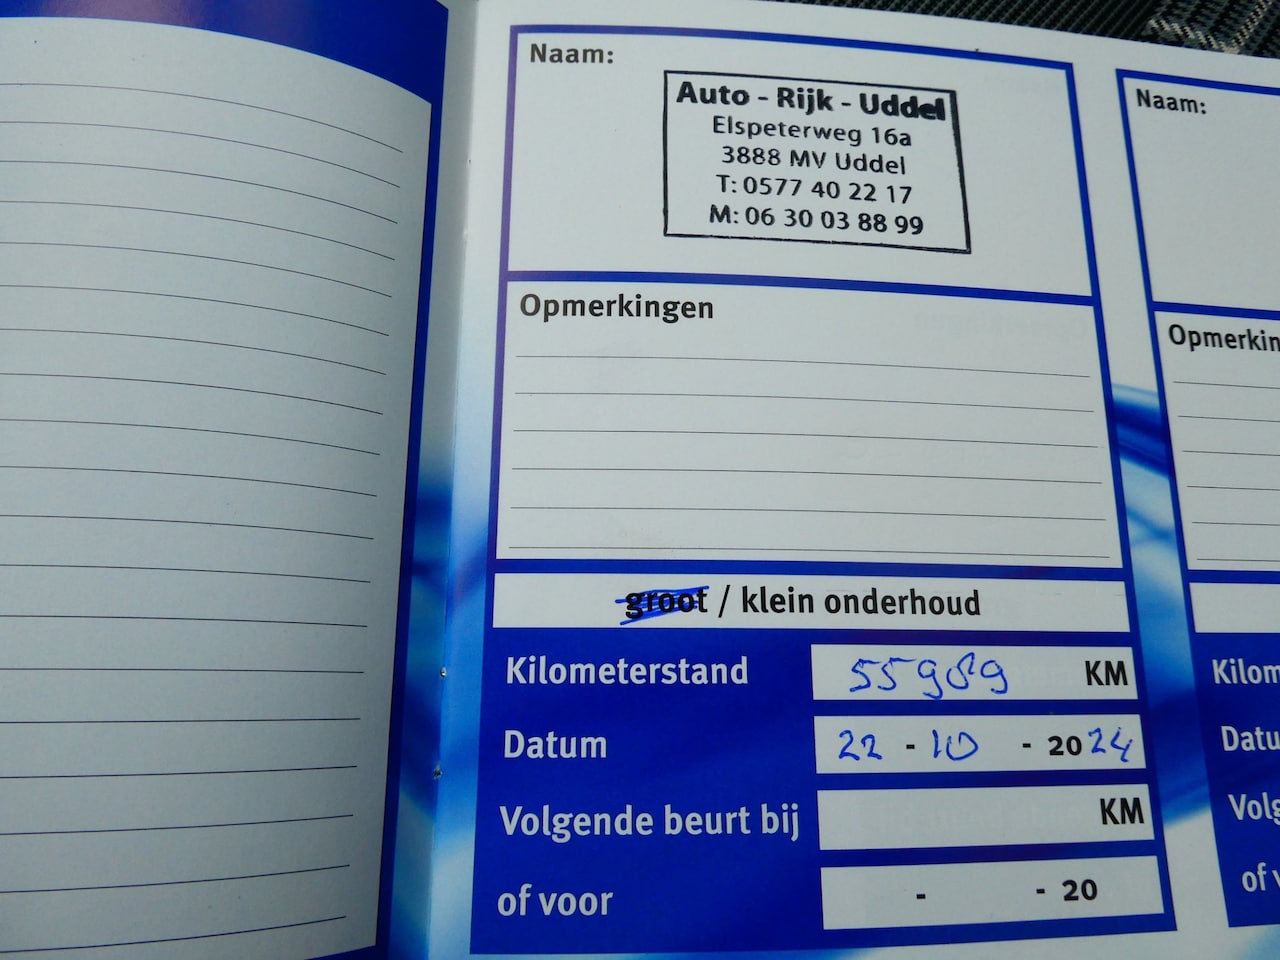 Naam:
Auto - Rijk - Uddel
Elspeterweg 16a
3888 MV Uddel
T: 0577 40 22 17
M: 06 30 03 88 99
Opmerkingen
groot / klein onderhoud
Kilometerstand 55989 KM
Datum 22 - 10 - 2024
Volgende beurt bij KM
of voor - - 20
Naam:
Opmerkin
Kilom
Datu
Volg
of v